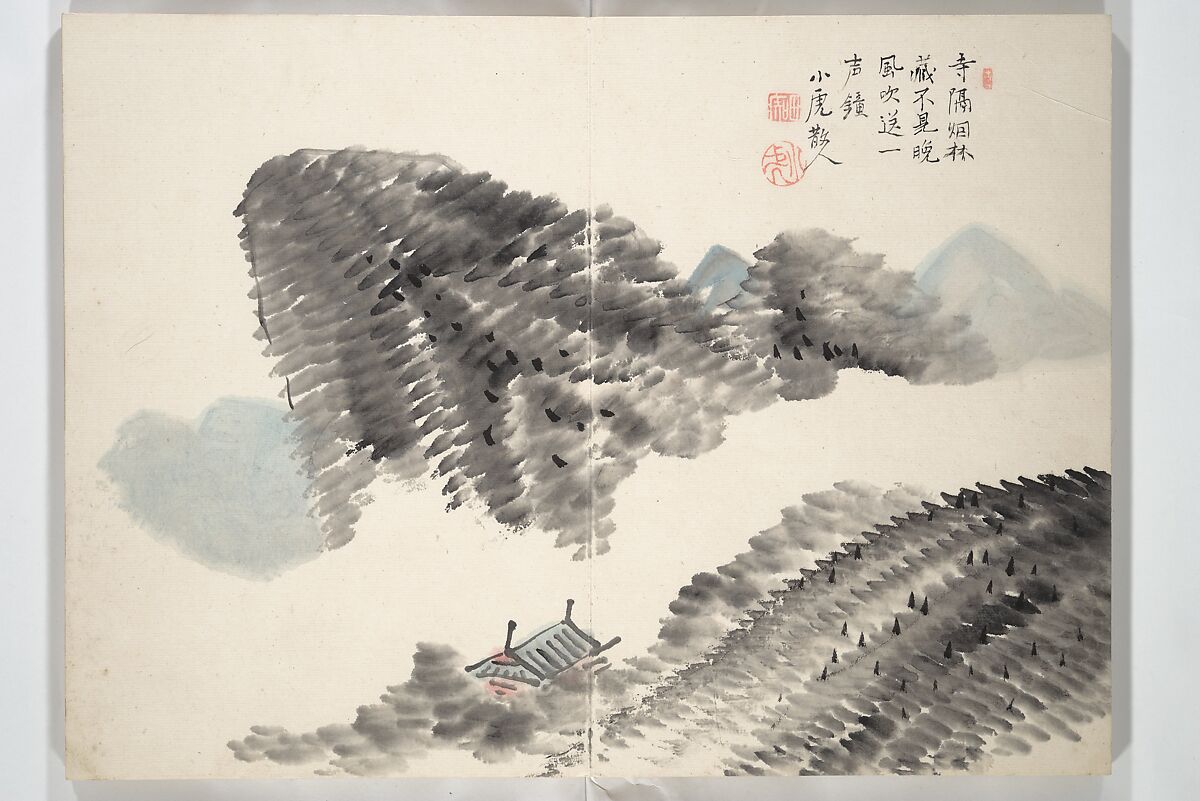 寺隔烟林
藏不見晚
風吹送一
声鐘
小虎散人